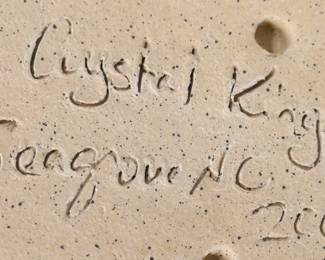 Crystal King
Seagrove NC
200